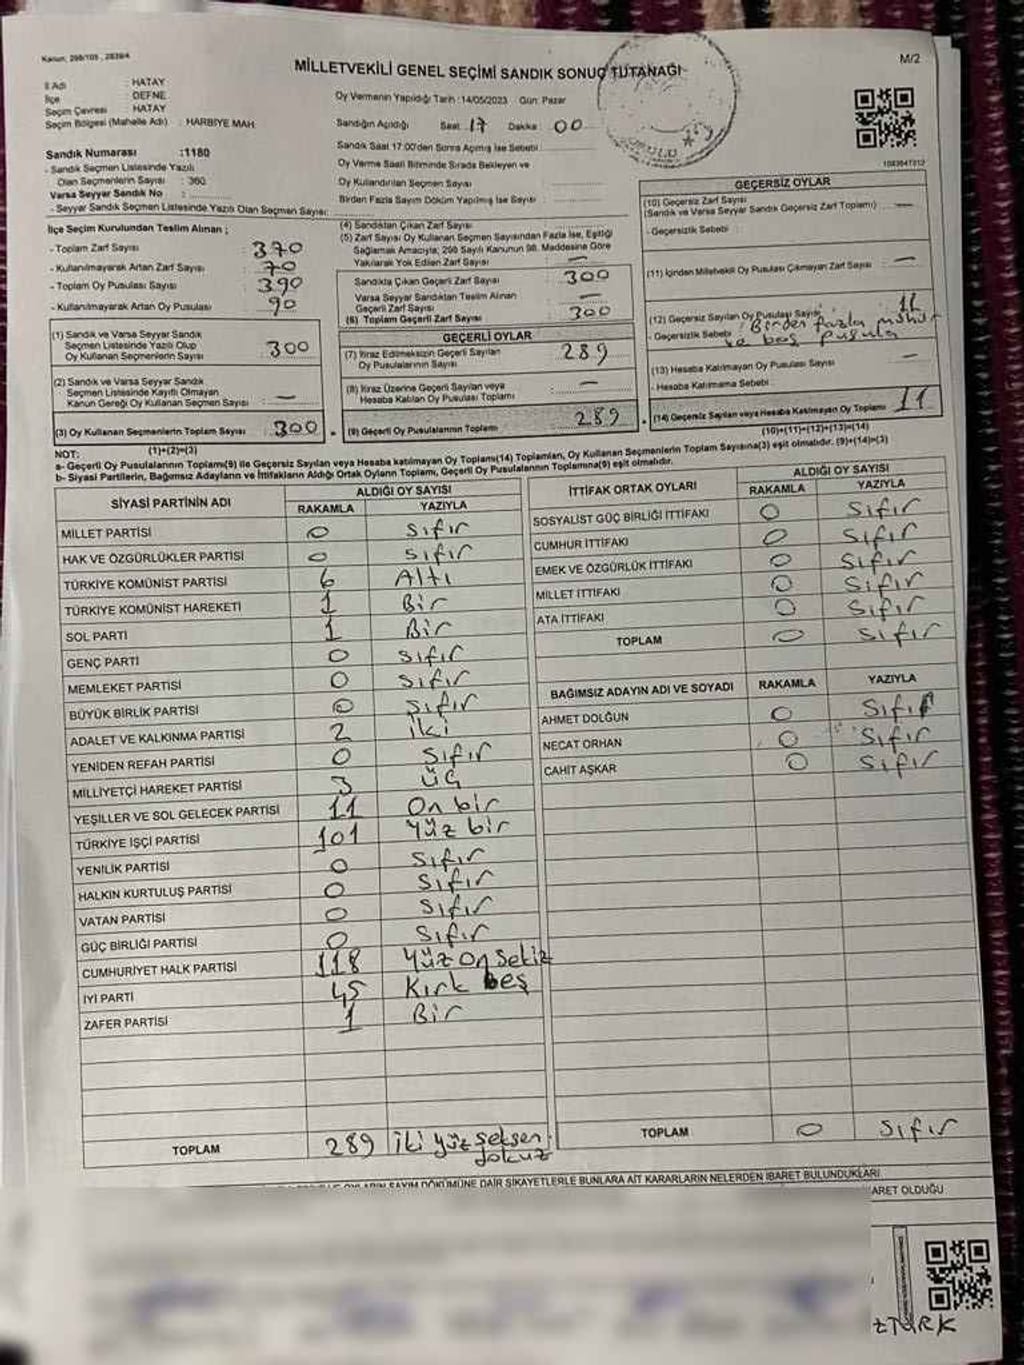 Kanun: 298/105, 2839/4
M/2
MİLLETVEKİLİ GENEL SEÇİMİ SANDIK SONUÇ TUTANAĞI
İl Adı : HATAY
İlçe : DEFNE
Seçim Çevresi : HATAY
Seçim Bölgesi (Mahalle Adı) : HARBİYE MAH.
Oy Vermenin Yapıldığı Tarih : 14/05/2023 Gün: Pazar
Sandığın Açıldığı Saat 17 Dakika 00
Sandık Saat 17:00'den Sonra Açılmış İse Sebebi
Oy Verme Saati Bitiminde Sırada Bekleyen ve
Oy Kullandırılan Seçmen Sayısı
Birden Fazla Sayım Döküm Yapılmış İse Sayısı
Sandık Numarası :1180
- Sandık Seçmen Listesinde Yazılı
Olan Seçmenlerin Sayısı : 360
Varsa Seyyar Sandık No :
- Seyyar Sandık Seçmen Listesinde Yazılı Olan Seçmen Sayısı:
İlçe Seçim Kurulundan Teslim Alınan ;
- Toplam Zarf Sayısı 370
- Kullanılmayarak Artan Zarf Sayısı 70
- Toplam Oy Pusulası Sayısı 390
- Kullanılmayarak Artan Oy Pusulası 90
(1) Sandık ve Varsa Seyyar Sandık
Seçmen Listesinde Yazılı Olup
Oy Kullanan Seçmenlerin Sayısı : 300
(2) Sandık ve Varsa Seyyar Sandık
Seçmen Listesinde Kayıtlı Olmayan
Kanun Gereği Oy Kullanan Seçmen Sayısı : —
(3) Oy Kullanan Seçmenlerin Toplam Sayısı 300
(1)+(2)=(3)
(4) Sandıktan Çıkan Zarf Sayısı
(5) Zarf Sayısı Oy Kullanan Seçmen Sayısından Fazla İse, Eşitliği
Sağlamak Amacıyla; 298 Sayılı Kanunun 98. Maddesine Göre
Yakılarak Yok Edilen Zarf Sayısı —
Sandıkta Çıkan Geçerli Zarf Sayısı 300
Varsa Seyyar Sandıktan Teslim Alınan
Geçerli Zarf Sayısı —
(6) Toplam Geçerli Zarf Sayısı 300
GEÇERLİ OYLAR
(7) İtiraz Edilmeksizin Geçerli Sayılan
Oy Pusulalarının Sayısı 289
(8) İtiraz Üzerine Geçerli Sayılan veya
Hesaba Katılan Oy Pusulası Toplamı —
(9) Geçerli Oy Pusulalarının Toplamı 289
1083647312
GEÇERSİZ OYLAR
(10) Geçersiz Zarf Sayısı
(Sandık ve Varsa Seyyar Sandık Geçersiz Zarf Toplamı) : —
- Geçersizlik Sebebi :
(11) İçinden Milletvekili Oy Pusulası Çıkmayan Zarf Sayısı —
(12) Geçersiz Sayılan Oy Pusulası Sayısı 11
- Geçersizlik Sebebi : Birden fazla mühür
ve boş pusula
(13) Hesaba Katılmayan Oy Pusulası Sayısı —
- Hesaba Katılmama Sebebi
(14) Geçersiz Sayılan veya Hesaba Katılmayan Oy Toplamı 11
(10)+(11)+(12)+(13)=(14)
NOT:
a- Geçerli Oy Pusulalarının Toplamı(9) ile Geçersiz Sayılan veya Hesaba katılmayan Oy Toplamı(14) Toplamları, Oy Kullanan Seçmenlerin Toplam Sayısına(3) eşit olmalıdır. (9)+(14)=(3)
b- Siyasi Partilerin, Bağımsız Adayların ve İttifakların Aldığı Ortak Oyların Toplamı, Geçerli Oy Pusulalarının Toplamına(9) eşit olmalıdır.
SİYASİ PARTİNİN ADI ALDIĞI OY SAYISI
RAKAMLA YAZIYLA
MİLLET PARTİSİ 0 Sıfır
HAK VE ÖZGÜRLÜKLER PARTİSİ 0 Sıfır
TÜRKİYE KOMÜNİST PARTİSİ 6 Altı
TÜRKİYE KOMÜNİST HAREKETİ 1 Bir
SOL PARTİ 1 Bir
GENÇ PARTİ 0 Sıfır
MEMLEKET PARTİSİ 0 Sıfır
BÜYÜK BİRLİK PARTİSİ 0 Sıfır
ADALET VE KALKINMA PARTİSİ 2 İki
YENİDEN REFAH PARTİSİ 0 Sıfır
MİLLİYETÇİ HAREKET PARTİSİ 3 üç
YEŞİLLER VE SOL GELECEK PARTİSİ 11 On bir
TÜRKİYE İŞÇİ PARTİSİ 101 Yüz bir
YENİLİK PARTİSİ 0 Sıfır
HALKIN KURTULUŞ PARTİSİ 0 Sıfır
VATAN PARTİSİ 0 Sıfır
GÜÇ BİRLİĞİ PARTİSİ 0 Sıfır
CUMHURİYET HALK PARTİSİ 118 Yüz On Sekiz
İYİ PARTİ 45 Kırk beş
ZAFER PARTİSİ 1 Bir
TOPLAM 289 İki yüz seksen
dokuz
İTTİFAK ORTAK OYLARI ALDIĞI OY SAYISI
RAKAMLA YAZIYLA
SOSYALİST GÜÇ BİRLİĞİ İTTİFAKI 0 Sıfır
CUMHUR İTTİFAKI 0 Sıfır
EMEK VE ÖZGÜRLÜK İTTİFAKI 0 Sıfır
MİLLET İTTİFAKI 0 Sıfır
ATA İTTİFAKI 0 Sıfır
TOPLAM 0 Sıfır
BAĞIMSIZ ADAYIN ADI VE SOYADI RAKAMLA YAZIYLA
AHMET DOLĞUN 0 Sıfır
NECAT ORHAN 0 Sıfır
CAHİT AŞKAR 0 Sıfır
TOPLAM 0 Sıfır
OYLARIN SAYIM DÖKÜMÜNE DAİR ŞİKAYETLERLE BUNLARA AİT KARARLARIN NELERDEN İBARET BULUNDUKLARI
ARET OLDUĞU
zTÜRK